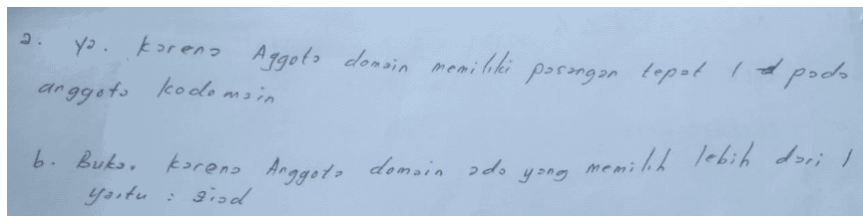 a. ya. karena Aggota domain memiliki pasangan tepat 1 pada
anggota kodomain
b. Buka. karena Anggota domain ada yang memilih lebih dari 1
yaitu : siad